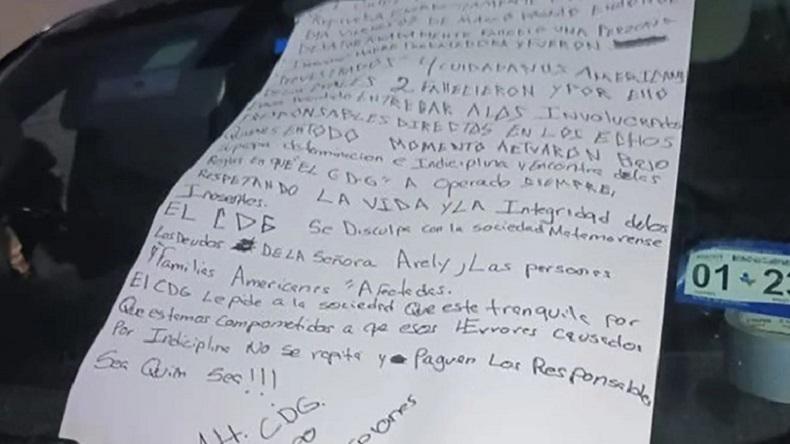 DIA VIERNES DE MARZO
DESAFORTUNADAMENTE FALLECIO UNA PERSONA
INOCENTE MADRE TRABAJADORA Y FUERON
4 CUIDADANOS AMERICAN
2 FAHELIERON Y POR ELLO
ENTREGAR A LOS Involucrados
RESPONSABLES DIRECTOS EN LOS ECHOS
Quienes EN TODO MOMENTO ACTUARON Bajo
determinacion e Indiciplina y Encontra delas
Reglas En QUE "EL CDG" A Operado SIEMPRE,
RESPETANDO LA VIDA Y LA Integridad delos
Inosentes.
EL CDG Se Disculpa con la sociedad Matamorense
Los Deudos DE LA Señora Arely, Las personas
Y Familias Americanas "Afectadas.
El CDG Le pide a la sociedad Que este tranquila por
Que estamos comprometidos a que esos Errores causados
Por Indiciplina No se repita y Paguen Los Responsables
Sea Quim Sea!!!
Att. CDG.
01 23